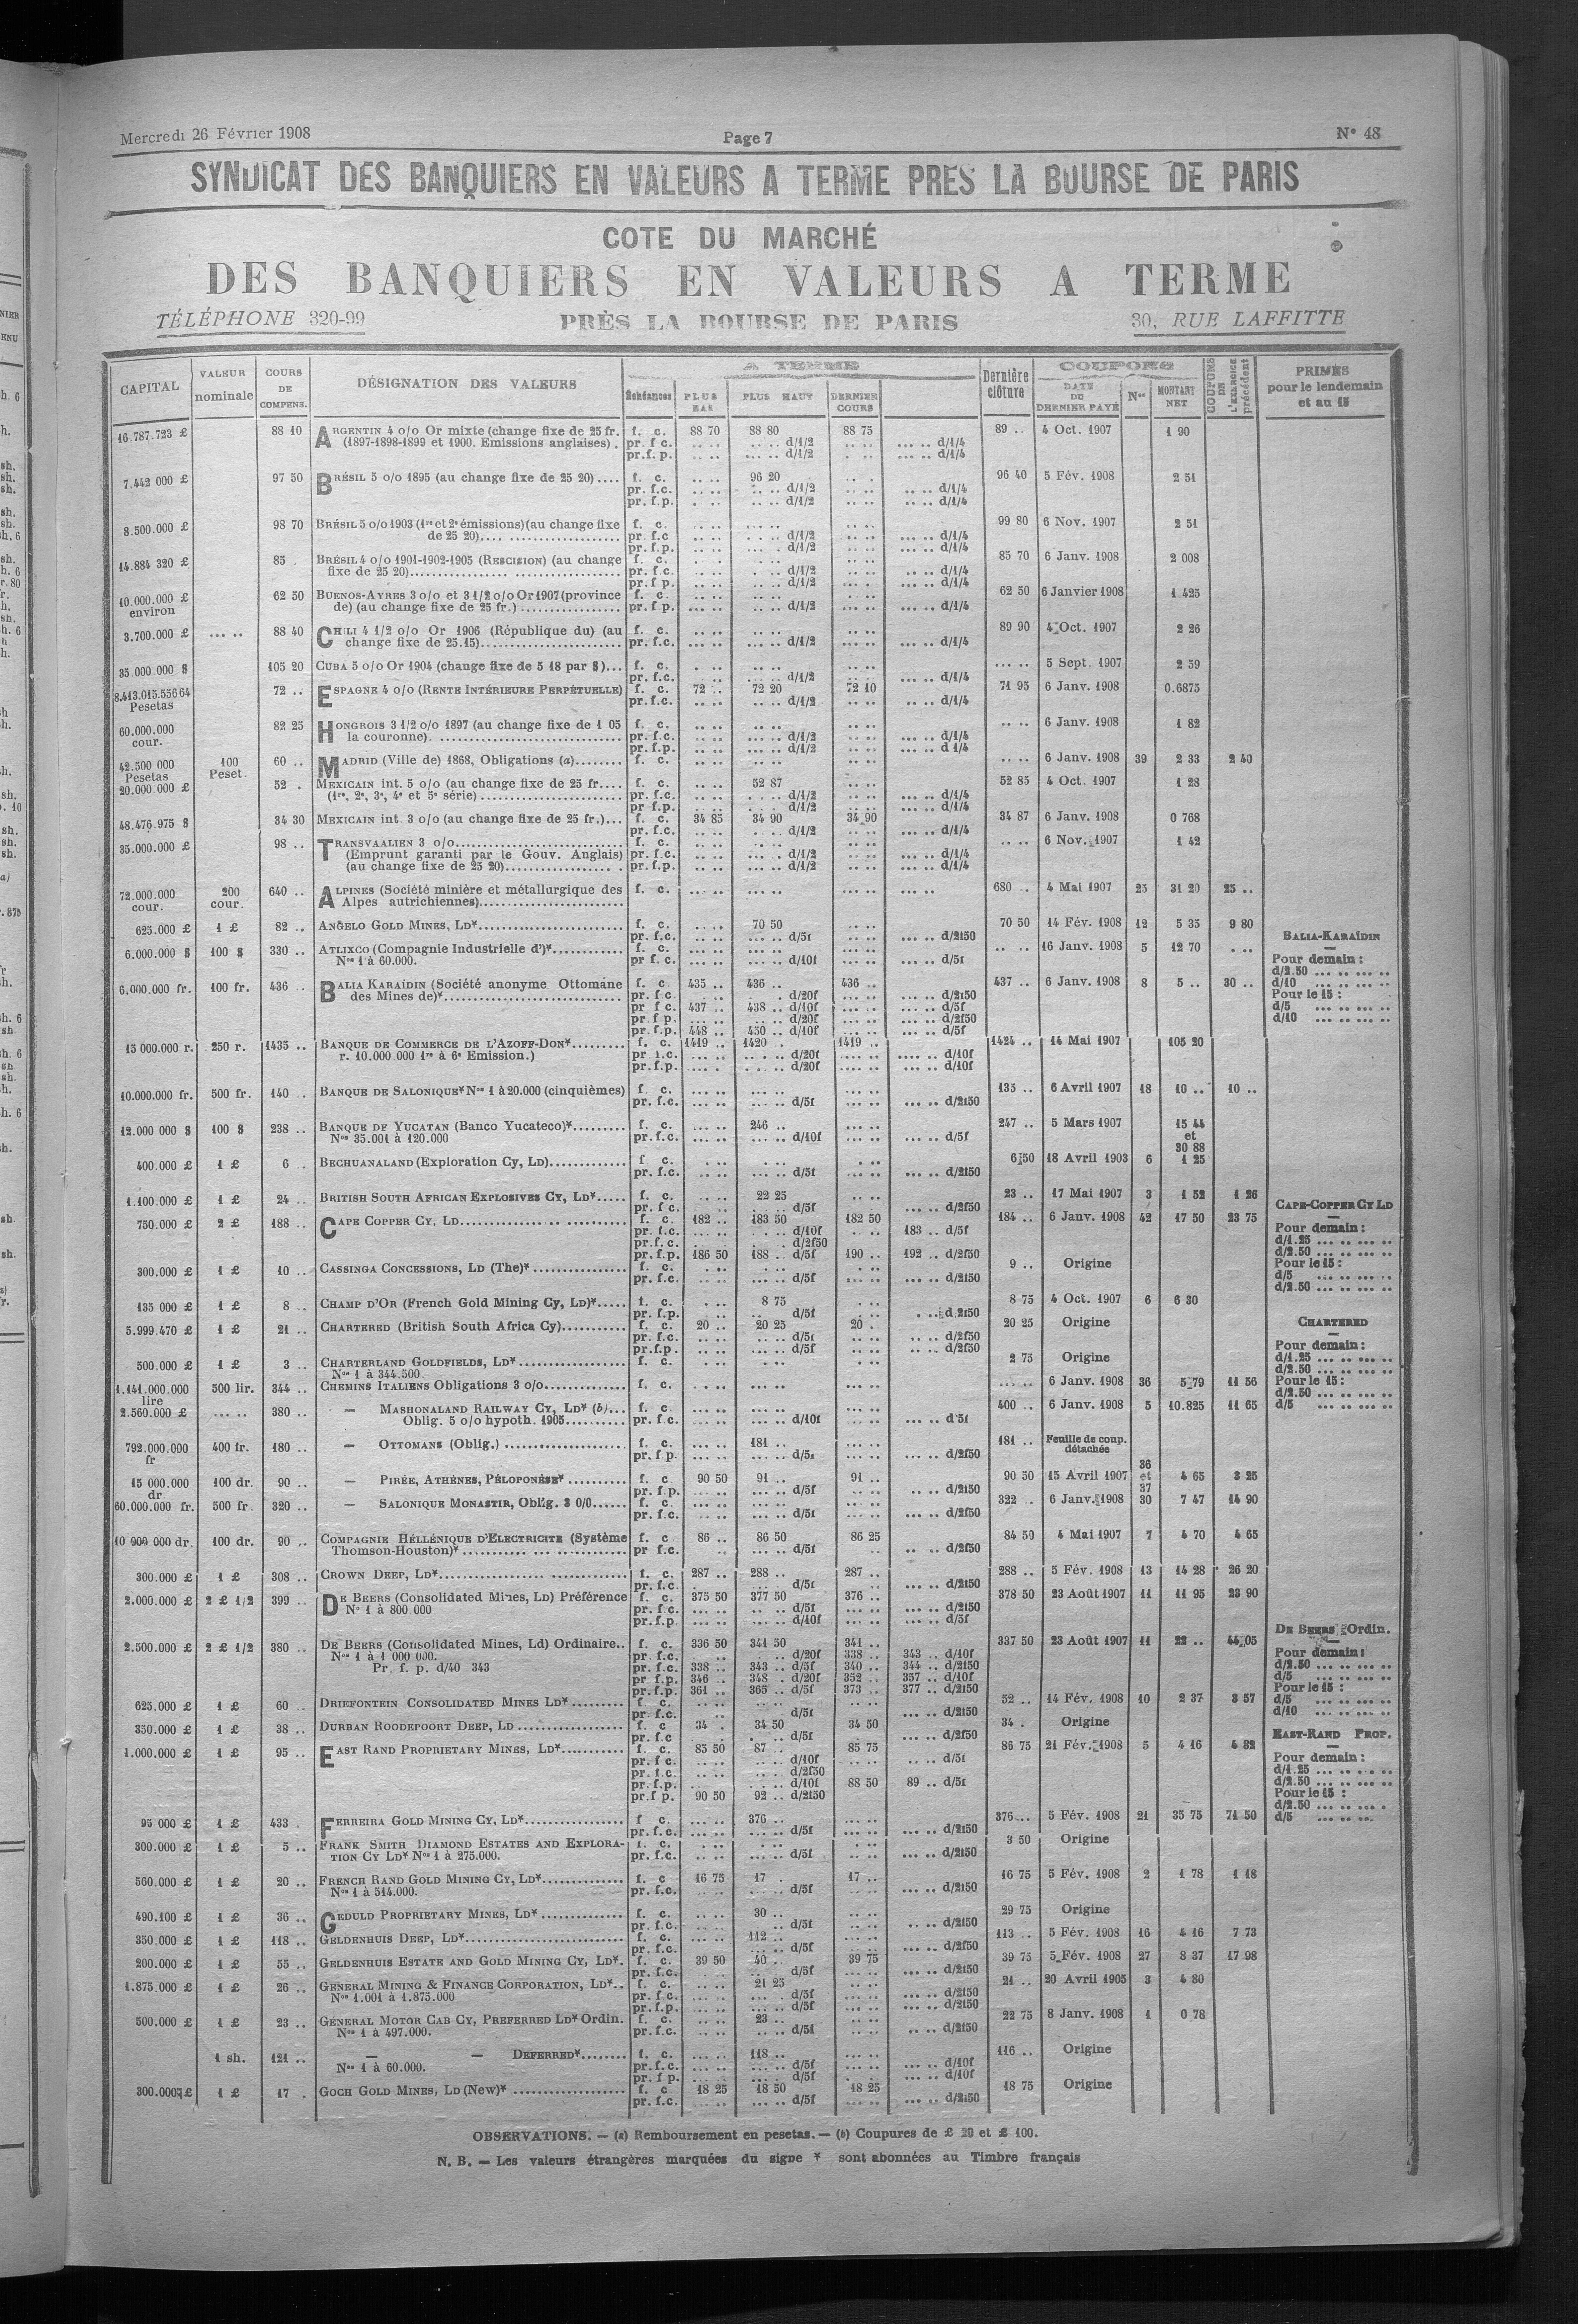 Mercredi 26 Février 1908
Page 7
N° 48
SYNDICAT DES BANQUIERS EN VALEURS A TERME PRES LA BOURSE DE PARIS
COTE DU MARCHÉ
DES BANQUIERS EN VALEURS A TERME
TÉLÉPHONE 320-99 PRÈS LA BOURSE DE PARIS 30, RUE LAFFITTE
CAPITAL
VALEUR nominale
COURS DE COMPENS.
DÉSIGNATION DES VALEURS
A TERME
Échéances
PLUS BAS
PLUS HAUT
DERNIER COURS
Dernière clôture
COUPONS
DATE DU DERNIER PAYÉ
Nos
MONTANT NET
COUPONS DE L'EXERCICE précédent
PRIMES pour le lendemain et au 15
16.787.723 £ 88 10 ARGENTIN 4 o/o Or mixte (change fixe de 25 fr. f. c. 88 70 88 80 88 75 89 .. 4 Oct. 1907 1 90
(1897-1898-1899 et 1900. Emissions anglaises) . pr. f c. d/1/2 d/1/4
pr.f. p. d/1/2 d/1/4
7.442 000 £ 97 50 BRÉSIL 5 o/o 1895 (au change fixe de 25 20).... f. c. 96 20 96 40 5 Fév. 1908 2 51
pr. f.c. d/1/2 d/1/4
pr. f.p. d/1/2 d/1/4
8.500.000 £ 98 70 BRÉSIL 5 o/o 1903 (1re et 2e émissions)(au change fixe f. c. 99 80 6 Nov. 1907 2 51
de 25 20).... pr. f.c d/1/2 d/1/4
pr. f.p. d/1/2 d/1/4
14.884 320 £ 85 . BRÉSIL 4 o/o 1901-1902-1905 (RESCISION) (au change f. c. 85 70 6 Janv. 1908 2 008
fixe de 25 20).... pr. f.c. d/1/2 d/1/4
pr. f p. d/1/2 d/1/4
10.000.000 £ environ 62 50 BUENOS-AYRES 3 o/o et 3 1/2 o/o Or 1907 (province f. c. 62 50 6 Janvier 1908 1 425
de) (au change fixe de 25 fr.) .... pr. f p. d/1/2 d/1/4
3.700.000 £ ... .. 88 40 CHILI 4 1/2 o/o Or 1906 (République du) (au f. c. 89 90 4 Oct. 1907 2 26
change fixe de 25.15).... pr. f.c. d/1/2 d/1/4
35 000.000 $ 105 20 CUBA 5 o/o Or 1904 (change fixe de 5 18 par $)... f. c. ... .. 5 Sept. 1907 2 59
pr. f.c. d/1/2 d/1/4
8.413.015.556 64 Pesetas 72 .. ESPAGNE 4 o/o (RENTE INTÉRIEURE PERPÉTUELLE) f. c. 72 .. 72 20 72 10 71 95 6 Janv. 1908 0.6875
pr. f.c. d/1/2 d/1/4
60.000.000 cour. 82 25 HONGROIS 3 1/2 o/o 1897 (au change fixe de 1 05 f. c. .. .. 6 Janv. 1908 1 82
la couronne). .... pr. f.c. d/1/2 d/1/4
pr. f.p. d/1/2 d 1/4
42.500 000 Pesetas 100 Peset. 60 .. MADRID (Ville de) 1868, Obligations (a)........ f. c. .. .. 6 Janv. 1908 39 2 33 2 40
20.000 000 £ 52 . MEXICAIN int. 5 o/o (au change fixe de 25 fr.... f. c. 52 87 52 85 4 Oct. 1907 1 28
(1re, 2e, 3e, 4e et 5e série) .... pr. f.c. d/1/2 d/1/4
pr f.p. d/1/2 d/1/4
48.476.975 $ 34 30 MEXICAIN int 3 o/o (au change fixe de 25 fr.)... f. c. 34 85 34 90 34 90 34 87 6 Janv. 1908 0 768
pr. f.c. d/1/2 d/1/4
35.000.000 £ 98 .. TRANSVAALIEN 3 o/o.... f. c. .. .. 6 Nov. 1907 1 42
(Emprunt garanti par le Gouv. Anglais) pr. f.c. d/1/2 d/1/4
(au change fixe de 25 20).... pr. f.p. d/1/2 d/1/4
72.000.000 cour. 200 cour. 640 .. ALPINES (Société minière et métallurgique des f. c. 680 .. 4 Mai 1907 25 31 20 25 ..
Alpes autrichiennes)....
625.000 £ 1 £ 82 .. ANGELO GOLD MINES, LD*.... f. c. 70 50 70 50 14 Fév. 1908 12 5 35 9 80
pr. f.c. d/5f d/2f50
6.000.000 $ 100 $ 330 .. ATLIXCO (Compagnie Industrielle d')*.... f. c. .. .. 16 Janv. 1908 5 12 70
Nos 1 à 60.000. pr f. c. d/10f d/5f
6.000.000 fr. 100 fr. 436 .. BALIA KARAÏDIN (Société anonyme Ottomane f. c 435 .. 436 .. 436 .. 437 .. 6 Janv. 1908 8 5 .. 30 ..
des Mines de)*.... pr. f c. d/20f d/2f50
pr f c. 437 .. 438 .. d/10f d/5f
pr f p. d/20f d/2f50
pr. f.p. 448 .. 450 .. d/10f d/5f
BALIA-KARAÏDIN
Pour demain :
d/2.50 ... .. ... ..
d/10 ... .. ... ..
Pour le 15 :
d/5 ... .. ... ..
d/10 ... .. ... ..
15 000.000 r. 250 r. 1435 .. BANQUE DE COMMERCE DE L'AZOFF-DON*.... f. c. 1419 .. 1420 . 1419 .. 1424 .. 14 Mai 1907 105 20
r. 10.000 000 1re à 6e Emission.) pr f.c. d/20f d/10f
pr. f.p. d/20f d/10f
10.000.000 fr. 500 fr. 140 .. BANQUE DE SALONIQUE* Nos 1 à 20.000 (cinquièmes) f. c. 135 .. 6 Avril 1907 18 10 .. 10 ..
pr. f.c. d/5f d/2f50
12.000 000 $ 100 $ 238 .. BANQUE DE YUCATAN (Banco Yucateco)*.... f. c. 246 .. 247 .. 5 Mars 1907 15 44 et 30 88
Nos 35.001 à 120.000 pr. f.c. d/10f d/5f
400.000 £ 1 £ 6 .. BECHUANALAND (Exploration Cy, LD).... f. c. 6 50 18 Avril 1903 6 1 25
pr. f.c. d/5f d/2f50
1.100.000 £ 1 £ 24 .. BRITISH SOUTH AFRICAN EXPLOSIVES CY, LD*..... f. c. 22 25 23 .. 17 Mai 1907 3 1 52 1 26
pr. f c. d/5f d/2f50
750.000 £ 2 £ 188 .. CAPE COPPER CY, LD.... f. c. 182 .. 183 50 182 50 184 .. 6 Janv. 1908 42 17 50 23 75
pr. f.c. d/10f 183 .. d/5f
pr. f. c. d/2f50
pr. f.p. 186 50 188 .. d/5f 190 .. 192 .. d/2f50
CAPE-COPPER CY LD
Pour demain :
d/1.25 ... .. ... ..
d/2.50 ... .. ... ..
Pour le 15 :
d/5 ... .. ... ..
d/2.50 ... .. ... ..
300.000 £ 1 £ 10 .. CASSINGA CONCESSIONS, LD (The)*.... f. c. 9 .. Origine
pr. f.c. d/5f d/2f50
135 000 £ 1 £ 8 .. CHAMP D'OR (French Gold Mining Cy, LD)*..... f. c. 8 75 8 75 4 Oct. 1907 6 6 30
pr. f.p. d/5f d 2f50
5.999.470 £ 1 £ 21 .. CHARTERED (British South Africa Cy).... f. c. 20 .. 20 25 20 . 20 25 Origine
pr. f.c. d/5f d/2f50
pr. f.p. d/5f d/2f50
CHARTERED
Pour demain :
d/1.25 ... .. ... ..
d/2.50 ... .. ... ..
Pour le 15 :
d/2.50 ... .. ... ..
d/5 ... .. ... ..
500.000 £ 1 £ 3 .. CHARTERLAND GOLDFIELDS, LD*.... f. c. 2 75 Origine
Nos 1 à 344.500.
1.141.000.000 lire 500 lir. 344 .. CHEMINS ITALIENS Obligations 3 o/o.... f. c. ... .. 6 Janv. 1908 36 5 79 11 56
2.560.000 £ ... .. 380 .. — MASHONALAND RAILWAY CY, LD* (b)... f. c. 400 .. 6 Janv. 1908 5 10.825 11 65
Oblig. 5 o/o hypoth. 1905.... pr. f c. d/10f d'5f
792.000.000 fr 400 fr. 180 .. — OTTOMANS (Oblig.) .... f. c. 181 .. 181 .. Feuille de coup. détachée
pr. f.p. d/5f d/2f50
15 000.000 dr 100 dr. 90 .. — PIRÉE, ATHÈNES, PÉLOPONÈSE*.... f. c 90 50 91 .. 91 .. 90 50 15 Avril 1907 36 et 37 4 65 3 25
pr. f.p. d/5f d/2f50
60.000.000 fr. 500 fr. 320 .. — SALONIQUE MONASTIR, Oblig. 3 0/0...... f. c. 322 .. 6 Janv. 1908 30 7 47 14 90
pr. f.c. d/5f d/2f50
10 900 000 dr. 100 dr. 90 .. COMPAGNIE HELLÉNIQUE D'ELECTRICITE (Système f. c 86 .. 86 50 86 25 84 50 4 Mai 1907 7 4 70 4 65
Thomson-Houston)*.... pr f.c. d/5f d/2f50
300.000 £ 1 £ 308 .. CROWN DEEP, LD*.... f. c. 287 .. 288 .. 287 .. 288 .. 5 Fév. 1908 13 14 28 26 20
pr. f.c. d/5f d/2f50
2.000.000 £ 2 £ 1/2 399 .. DE BEERS (Consolidated Mines, LD) Préférence f. c. 375 50 377 50 376 .. 378 50 23 Août 1907 11 11 95 23 90
Nos 1 à 800 000 pr. f c. d/5f d/2f50
pr. f.p. d/10f d/5f
2.500.000 £ 2 £ 1/2 380 .. DE BEERS (Consolidated Mines, Ld) Ordinaire.. f. c. 336 50 341 50 341 .. 337 50 23 Août 1907 11 22 .. 44 05
Nos 1 à 1 000 000. pr. f.c. d/20f 338 .. 343 .. d/10f
Pr. f. p. d/40 343 pr. f.c. 338 .. 343 .. d/5f 340 .. 344 .. d/2f50
pr f.p. 346 .. 348 . d/20f 352 .. 357 .. d/10f
pr. f.p. 361 .. 365 .. d/5f 373 .. 377 .. d/2f50
DE BEERS Ordin.
Pour demain :
d/2.50 ... .. ... ..
d/5 ... .. ... ..
Pour le 15 :
d/5 ... .. ... ..
d/10 ... .. ... ..
625.000 £ 1 £ 60 .. DRIEFONTEIN CONSOLIDATED MINES LD*.... f c. 52 .. 14 Fév. 1908 10 2 37 3 57
pr. f.c. d/5f d/2f50
350.000 £ 1 £ 38 .. DURBAN ROODEPOORT DEEP, LD .... f. c 34 . 34 50 34 50 34 . Origine
pr. f.c d/5f d/2f50
1.000.000 £ 1 £ 95 .. EAST RAND PROPRIETARY MINES, LD*.... f. c. 85 50 87 .. 85 75 86 75 21 Fév. 1908 5 4 16 4 82
pr. f c. d/10f d/5f
pr. f.c. d/2f50
pr. f.p. d/10f 88 50 89 .. d/5f
pr. f p. 90 50 92 .. d/2f50
EAST-RAND PROP.
Pour demain :
d/1.25 ... .. ... ..
d/2.50 ... .. ... ..
Pour le 15 :
d/2.50 ... .. ... .
d/5 ... .. ... ..
95 000 £ 1 £ 433 . FERREIRA GOLD MINING CY, LD*.... f c. 376 .. 376 .. 5 Fév. 1908 21 35 75 71 50
pr. f.c. d/5f d/2f50
300.000 £ 1 £ 5 .. FRANK SMITH DIAMOND ESTATES AND EXPLORA- f. c. 3 50 Origine
TION CY LD* Nos 1 à 275.000. pr. f.c. d/5f d/2f50
560.000 £ 1 £ 20 .. FRENCH RAND GOLD MINING CY, LD*.... f. c 16 75 17 . 17 .. 16 75 5 Fév. 1908 2 1 78 1 18
Nos 1 à 514.000. pr. f.c. d/5f d/2f50
490.100 £ 1 £ 36 .. GEDULD PROPRIETARY MINES, LD*.... f. c. 30 .. 29 75 Origine
pr. f c. d/5f d/2f50
350.000 £ 1 £ 118 .. GELDENHUIS DEEP, LD*.... f. c. 112 .. 113 .. 5 Fév. 1908 16 4 16 7 73
pr. f.c. d/5f d/2f50
200.000 £ 1 £ 55 .. GELDENHUIS ESTATE AND GOLD MINING CY, LD*. f. c. 39 50 40 .. 39 75 39 75 5 Fév. 1908 27 8 37 17 98
pr. f.c. d/5f d/2f50
1.875.000 £ 1 £ 26 .. GENERAL MINING & FINANCE CORPORATION, LD*.. f. c. 21 25 21 .. 20 Avril 1905 3 4 80
Nos 1.001 à 1.875.000 pr. f c. d/5f d/2f50
pr. f.p. d/5f d/2f50
500.000 £ 1 £ 23 .. GENERAL MOTOR CAB CY, PREFERRED LD* Ordin. f. c. 23 .. 22 75 8 Janv. 1908 1 0 78
Nos 1 à 497.000. pr. f.c. d/5f d/2f50
1 sh. 121 .. — — DEFERRED*........ f. c. 118 .. 116 .. Origine
Nos 1 à 60.000. pr. f.c. d/5f d/10f
pr. f p. d/5f d/10f
300.000 £ 1 £ 17 . GOCH GOLD MINES, LD (New)* .... f. c 18 25 18 50 18 25 18 75 Origine
pr. f.c. d/5f d/2f50
OBSERVATIONS. — (a) Remboursement en pesetas. — (b) Coupures de £ 20 et £ 100.
N. B. — Les valeurs étrangères marquées du signe * sont abonnées au Timbre français